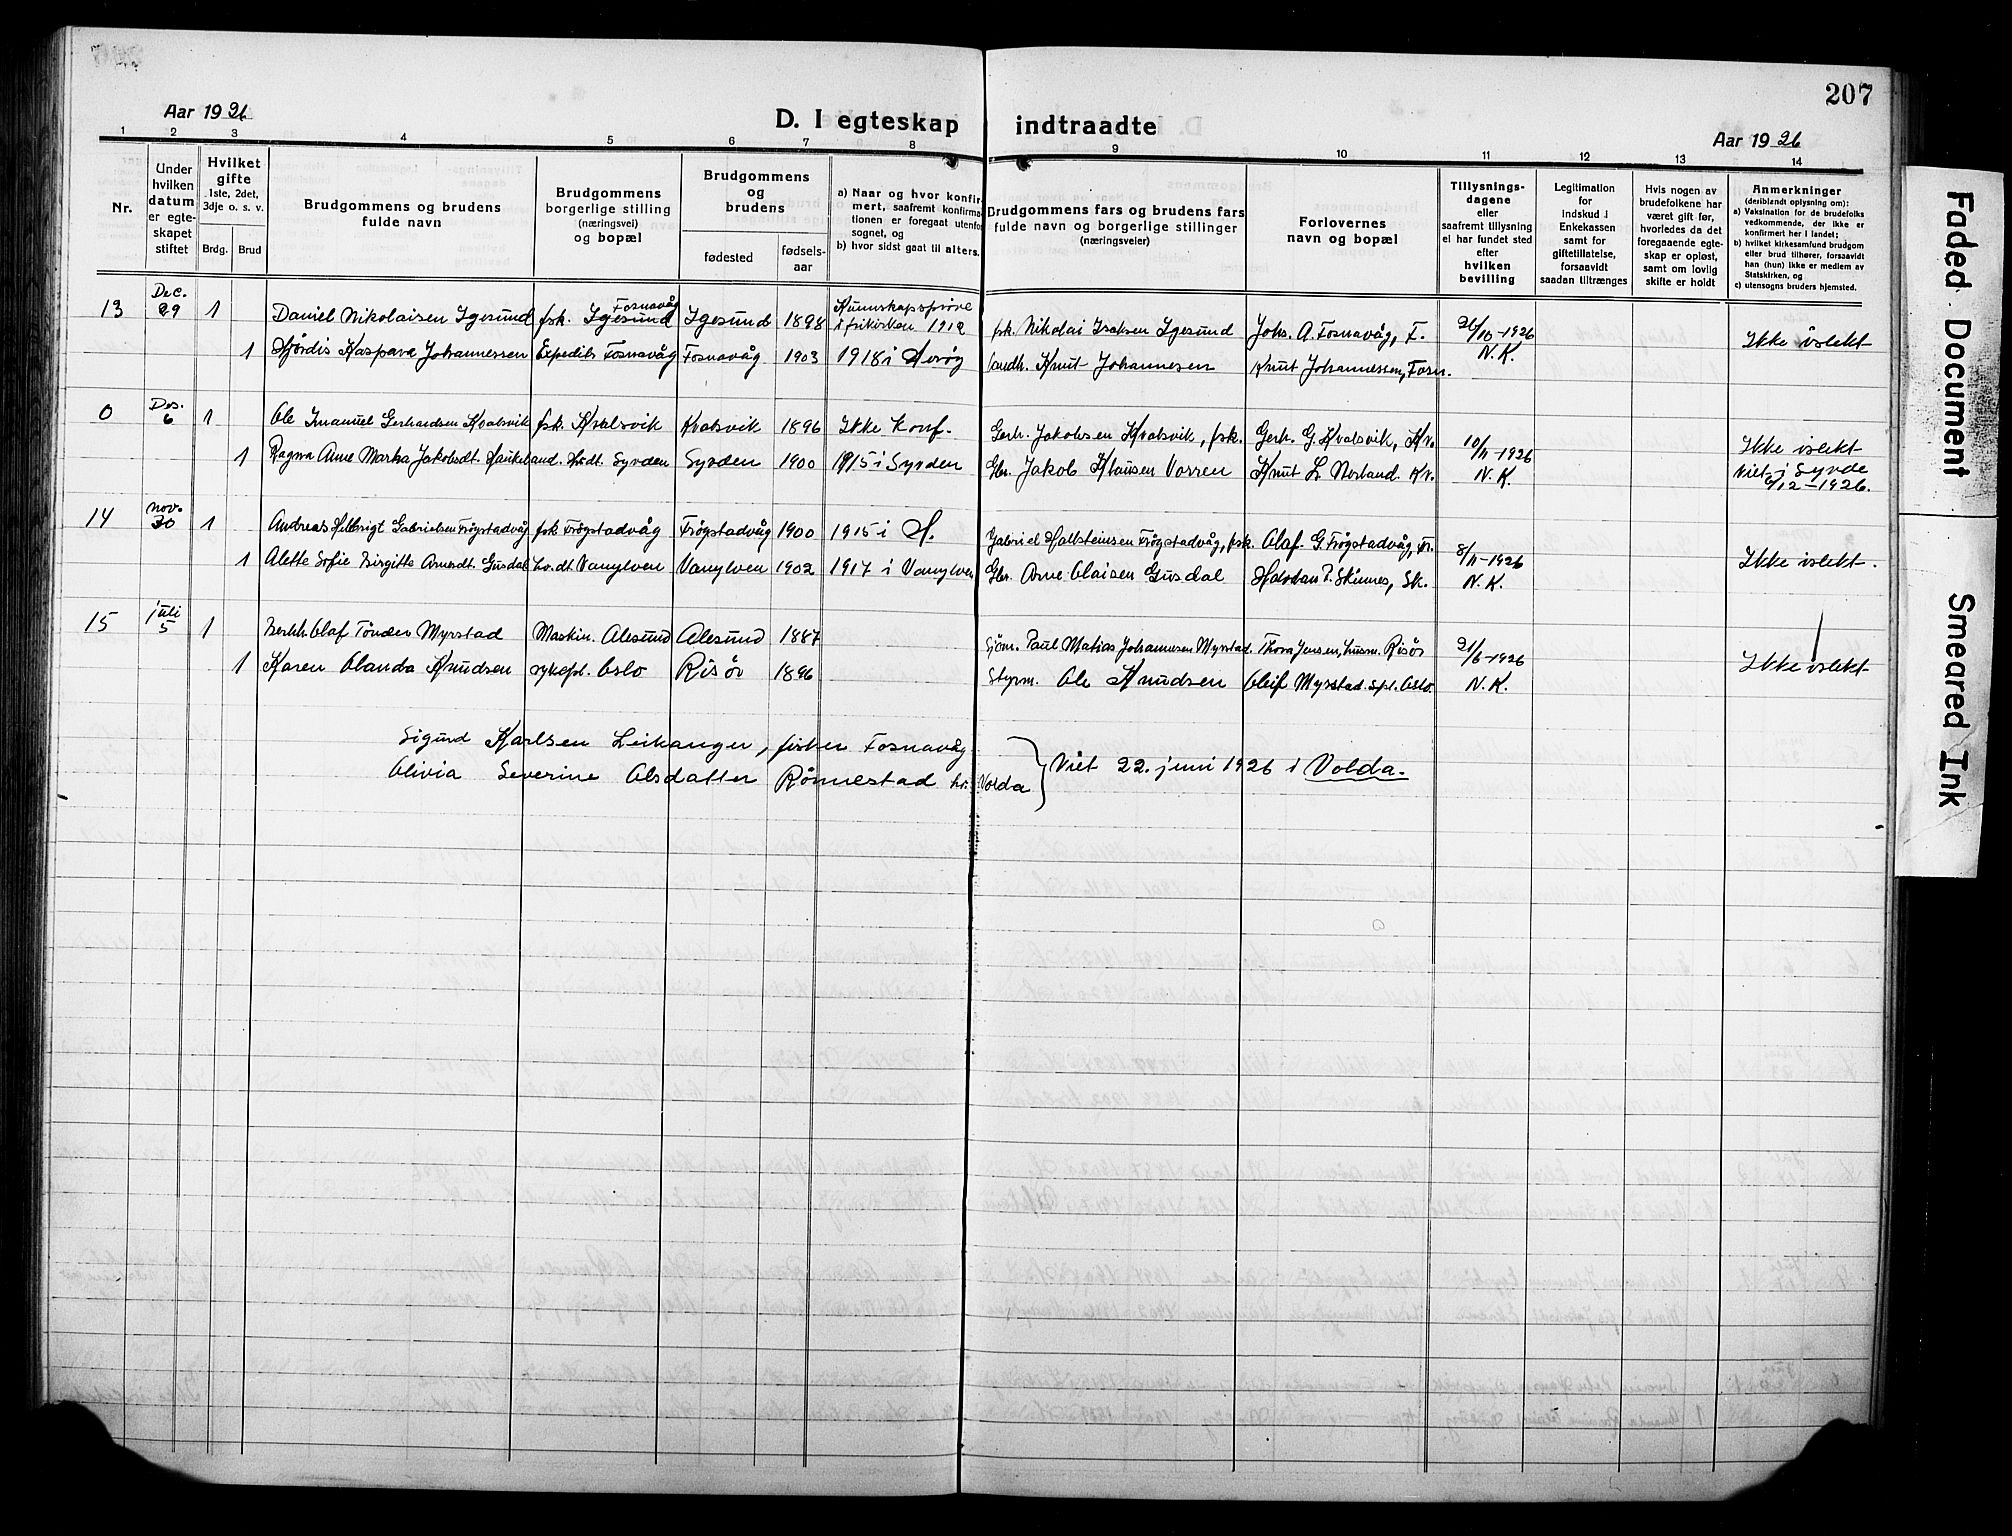 207
Aar 1926
D. I egteskap indtraadte
Aar 1926
1 2 3 4 5 6 7 8 9 10 11 12 13 14
Nr.
Under hvilken datum er egteskapet stiftet
Hvilket gifte 1ste, 2det, 3dje o. s. v.
Brdg. Brud
Brudgommens og brudens fulde navn
Brudgommens borgerlige stilling (næringsvei) og bopæl
Brudgommens og brudens
fødested fødselsaar
a) Naar og hvor konfirmert, saafremt konfirmationen er foregaat utenfor sognet, og
b) hvor sidst gaat til alters.
Brudgommens fars og brudens fars fulde navn og borgerlige stillinger (næringsveier)
Forlovernes navn og bopæl
Tillysningsdagene eller saafremt tillysning ei har fundet sted efter hvilken bevilling
Legitimation for Indskud i Enkekassen samt for giftetillatelse, forsaavidt saadan tiltrænges
Hvis nogen av brudefolkene har været gift før, hvorledes da det foregaaende egteskap er opløst, samt om lovlig skifte er holdt
Anmerkninger (deriblandt oplysning om):
a) Vaksination for de brudefolks vedkommende, der ikke er konfirmert her i landet;
b) hvilket kirkesamfund brudgom eller brud tilhører, forsaavidt han (hun) ikke er medlem av Statskirken, og
c) utensogns bruders hjemsted.
13 Dec. 29 1 Daniel Nikolaisen Igesund fsk. Igesund Fosnavåg Igesund 1898 Kunnskapsprøve i frikirken 1912 fsk. Nikolai Isaksen Igesund Johs. A. Fosnavåg, F. 26/10-1926 Ikke i slekt
1 Hjördis Kaspara Johannessen Expeditr. Fosnavåg Fosnavåg 1903 1918 i Herøy Landh. Knut Johannesen Knut Johannessen, Fosn. N.K.
0 Des. 6 1 Ole Imanuel Gerhardsen Kvalsvik fsk. Kvalsvik Kvalsvik 1896 Ikke konf. Gerh. Jakobsen Kvalsvik, fsk. Gerh. G. Kvalsvik, Kv. 10/11-1926 Ikke i slekt
1 Ragna Anne Marka Jakobsdt. Haukeland. hv.dt. Syvden Syvden 1900 1915 i Syvden Gbr. Jakob Klausen Vorren Knut L. Nerland. Kv. N.K. Viet i Syvde 6/12-1926.
14 nov. 30 1 Andreas Helbrigt Gabrielsen Frøystadvåg fsk Frøystadvåg Frøystadvåg 1900 1915 i H. Gabriel Hallsteinsen Frøystadvåg, fsk. Olaf. G. Frøystadvåg, Fr. 8/11-1926 Ikke i slekt.
1 Alette Sofie Birgitte Arnesdt. Gusdal hv.dt Vanylven Vanylven 1902 1917 i Vanylven Gbr. Arne Olaisen Gusdal Halvdan P. Skinnes, Sk. N.K.
15 juli 5 1 Olaf Tönder Myrstad Maskin. Alesund Alesund 1887 Sjöm. Paul Matias Johannesen Myrstad Thora Jensen, husm. Risör 21/6-1926 Ikke i slekt
1 Karen Olanda Knudsen sykepl. Oslo Risör 1896 Styrm. Ole Knudsen Oleif Myrstad. spl. Oslo. N.K.
Sigurd Karlsen Leikanger, fisker Fosnavåg
Olivia Severine Olsdatter Rönnestad hv. Volda } Viet 22. juni 1926 i Volda.
Faded Document
Smeared Ink